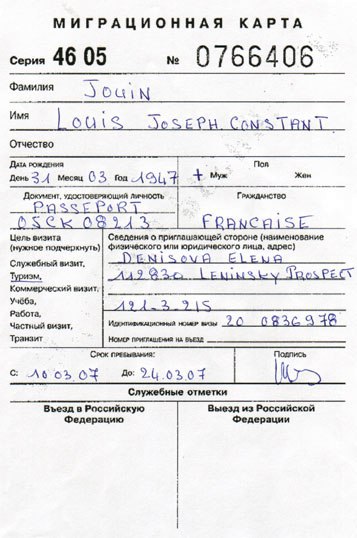 МИГРАЦИОННАЯ КАРТА
Серия 46 05 № 0766406
Фамилия JOUIN
Имя LOUIS JOSEPH. CONSTANT.
Отчество
Дата рождения
Пол
День 31 Месяц 03 Год 1947 + Муж Жен
Документ, удостоверяющий личность
Гражданство
PASSEPORT
05CK 08213
FRANCAISE
Цель визита
(нужное подчеркнуть)
Служебный визит,
Туризм,
Коммерческий визит,
Учёба,
Работа,
Частный визит,
Транзит
Сведения о приглашающей стороне (наименование
физического или юридического лица, адрес)
DENISOVA ELENA
112830 LENINSKY PROSPECT
121-3-215
Идентификационный номер визы 20 0836978
Номер приглашения на въезд
Срок пребывания:
Подпись
С: 10.03.07 До: 24.03.07
Служебные отметки
Въезд в Российскую
Федерацию
Выезд из Российской
Федерации